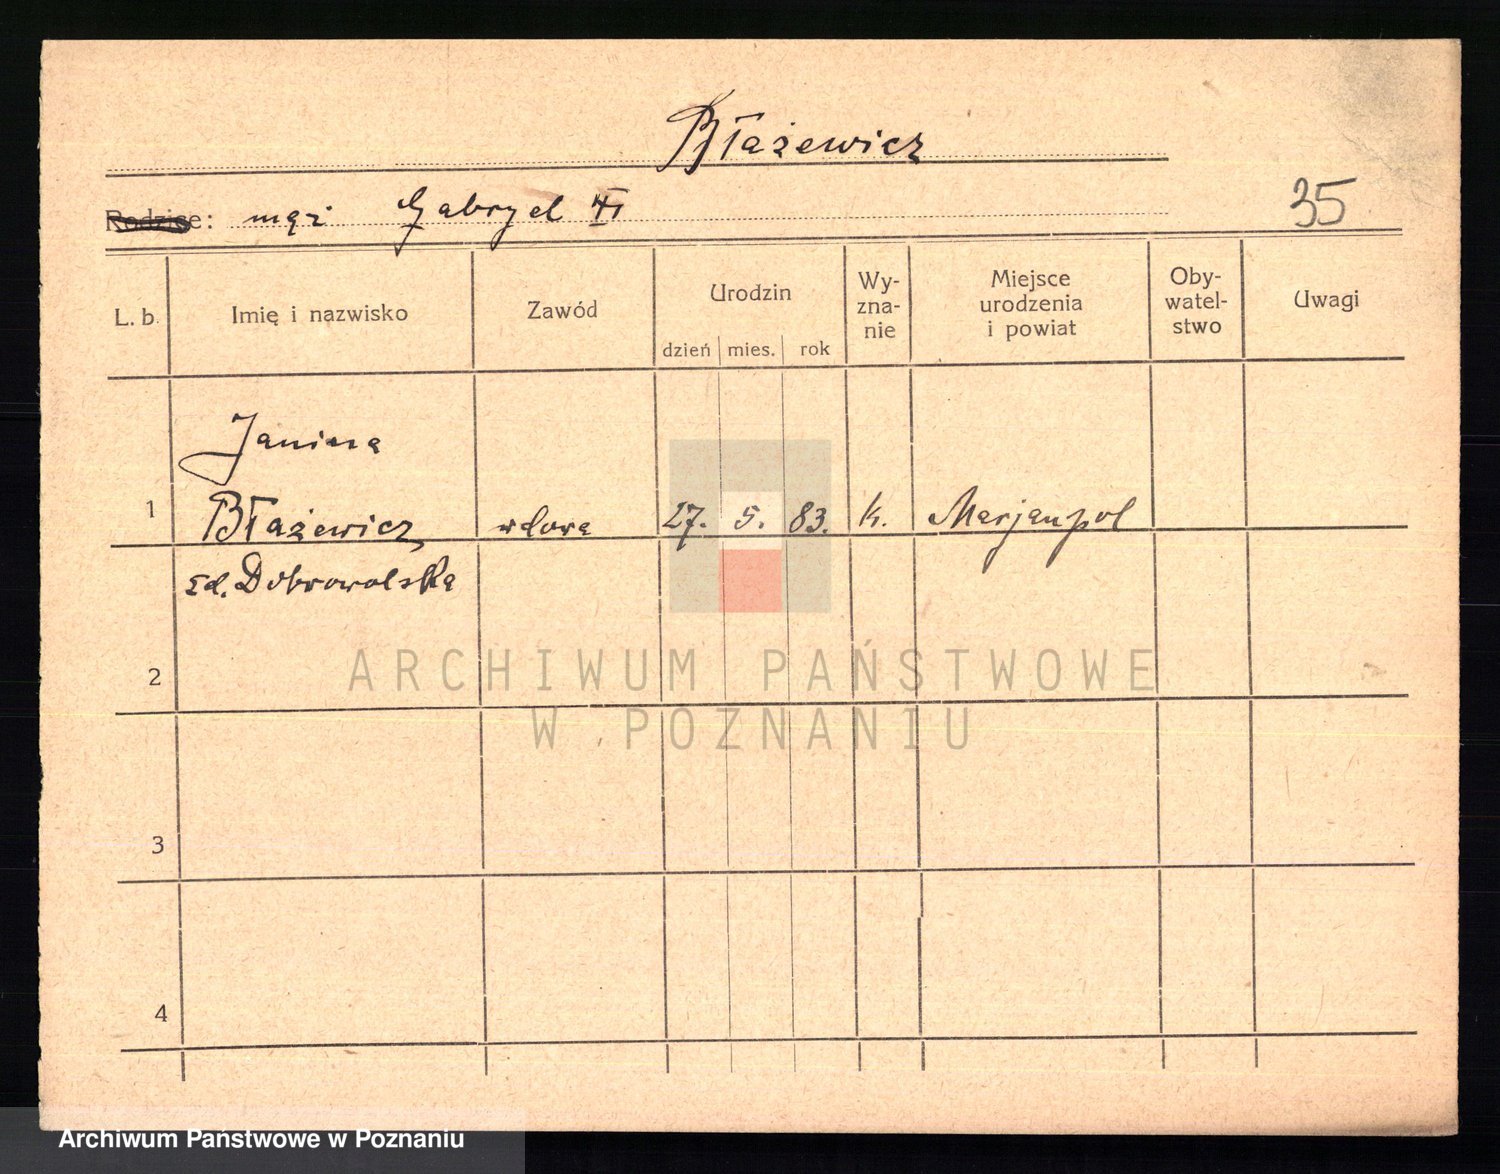 Błażewicz
Rodzice: mąż Gabryel
35
L. b. Imię i nazwisko Zawód Urodzin Wy- Miejsce Oby- Uwagi
zna- urodzenia watel-
nie i powiat stwo
dzień mies. rok
Janina
1 Błażewicz wdowa 27. 5. 83. k. Marjanpol
zd. Dobrowolska
2
3
4
ARCHIWUM PAŃSTWOWE
W POZNANIU
Archiwum Państwowe w Poznaniu